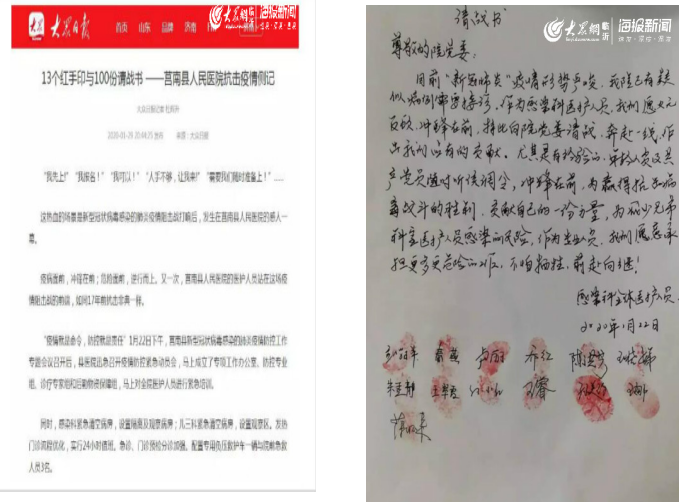 大众日报
首页 山东 品牌 济南
大众网 临沂 海报新闻
13个红手印与100份请战书 ——莒南县人民医院抗击疫情侧记
“我先上!” “我报名!” “我可以!” “人手不够,让我来!” “需要我们随时准备上!”……
这热血的场景是新型冠状病毒感染的肺炎疫情阻击战打响后,发生在莒南县人民医院的感人一
幕。
疫病面前,冲锋在前;危险面前,逆行而上。又一次,莒南县人民医院的医护人员站在这场疫
情阻击战的前线,如同17年前抗击非典一样。
“疫情就是命令,防控就是责任” 1月22日下午,莒南县新型冠状病毒感染的肺炎疫情防控工作
专题会议召开后,县医院迅急召开疫情防控紧急动员会,马上成立了专项工作办公室、防控专业
组、诊疗专家组和后勤物资保障组,马上对全院医护人员进行紧急培训。
同时,感染科紧急清空病房,设置隔离及观察病房;儿三科紧急清空病房,设置观察区。发热
门诊流程优化,实行24小时值班。急诊、门诊预检分诊加强。配置专用负压救护车一辆与院前急救
人员3名。
请战书
大众网 临沂 海报新闻
尊敬的院党委:
目前“新冠肺炎”疫情形势严峻,我院已有疑
似病例需要接诊,作为感染科医护人员,我们愿义无
反顾,冲锋在前,特此向院党委请战,奔赴一线,作
出我们应有的贡献。尤其是有经验的年龄人员及共
产党员随时听候调令,冲锋在前,为赢得抗击病
毒战斗的胜利,贡献自己的一份力量,为减少兄弟
科室医护人员感染的风险,作为专业人员,我们愿意承
担更多更危险的工作,不怕牺牲,勇往向前!
感染科全体医护人员
2020年1月22日